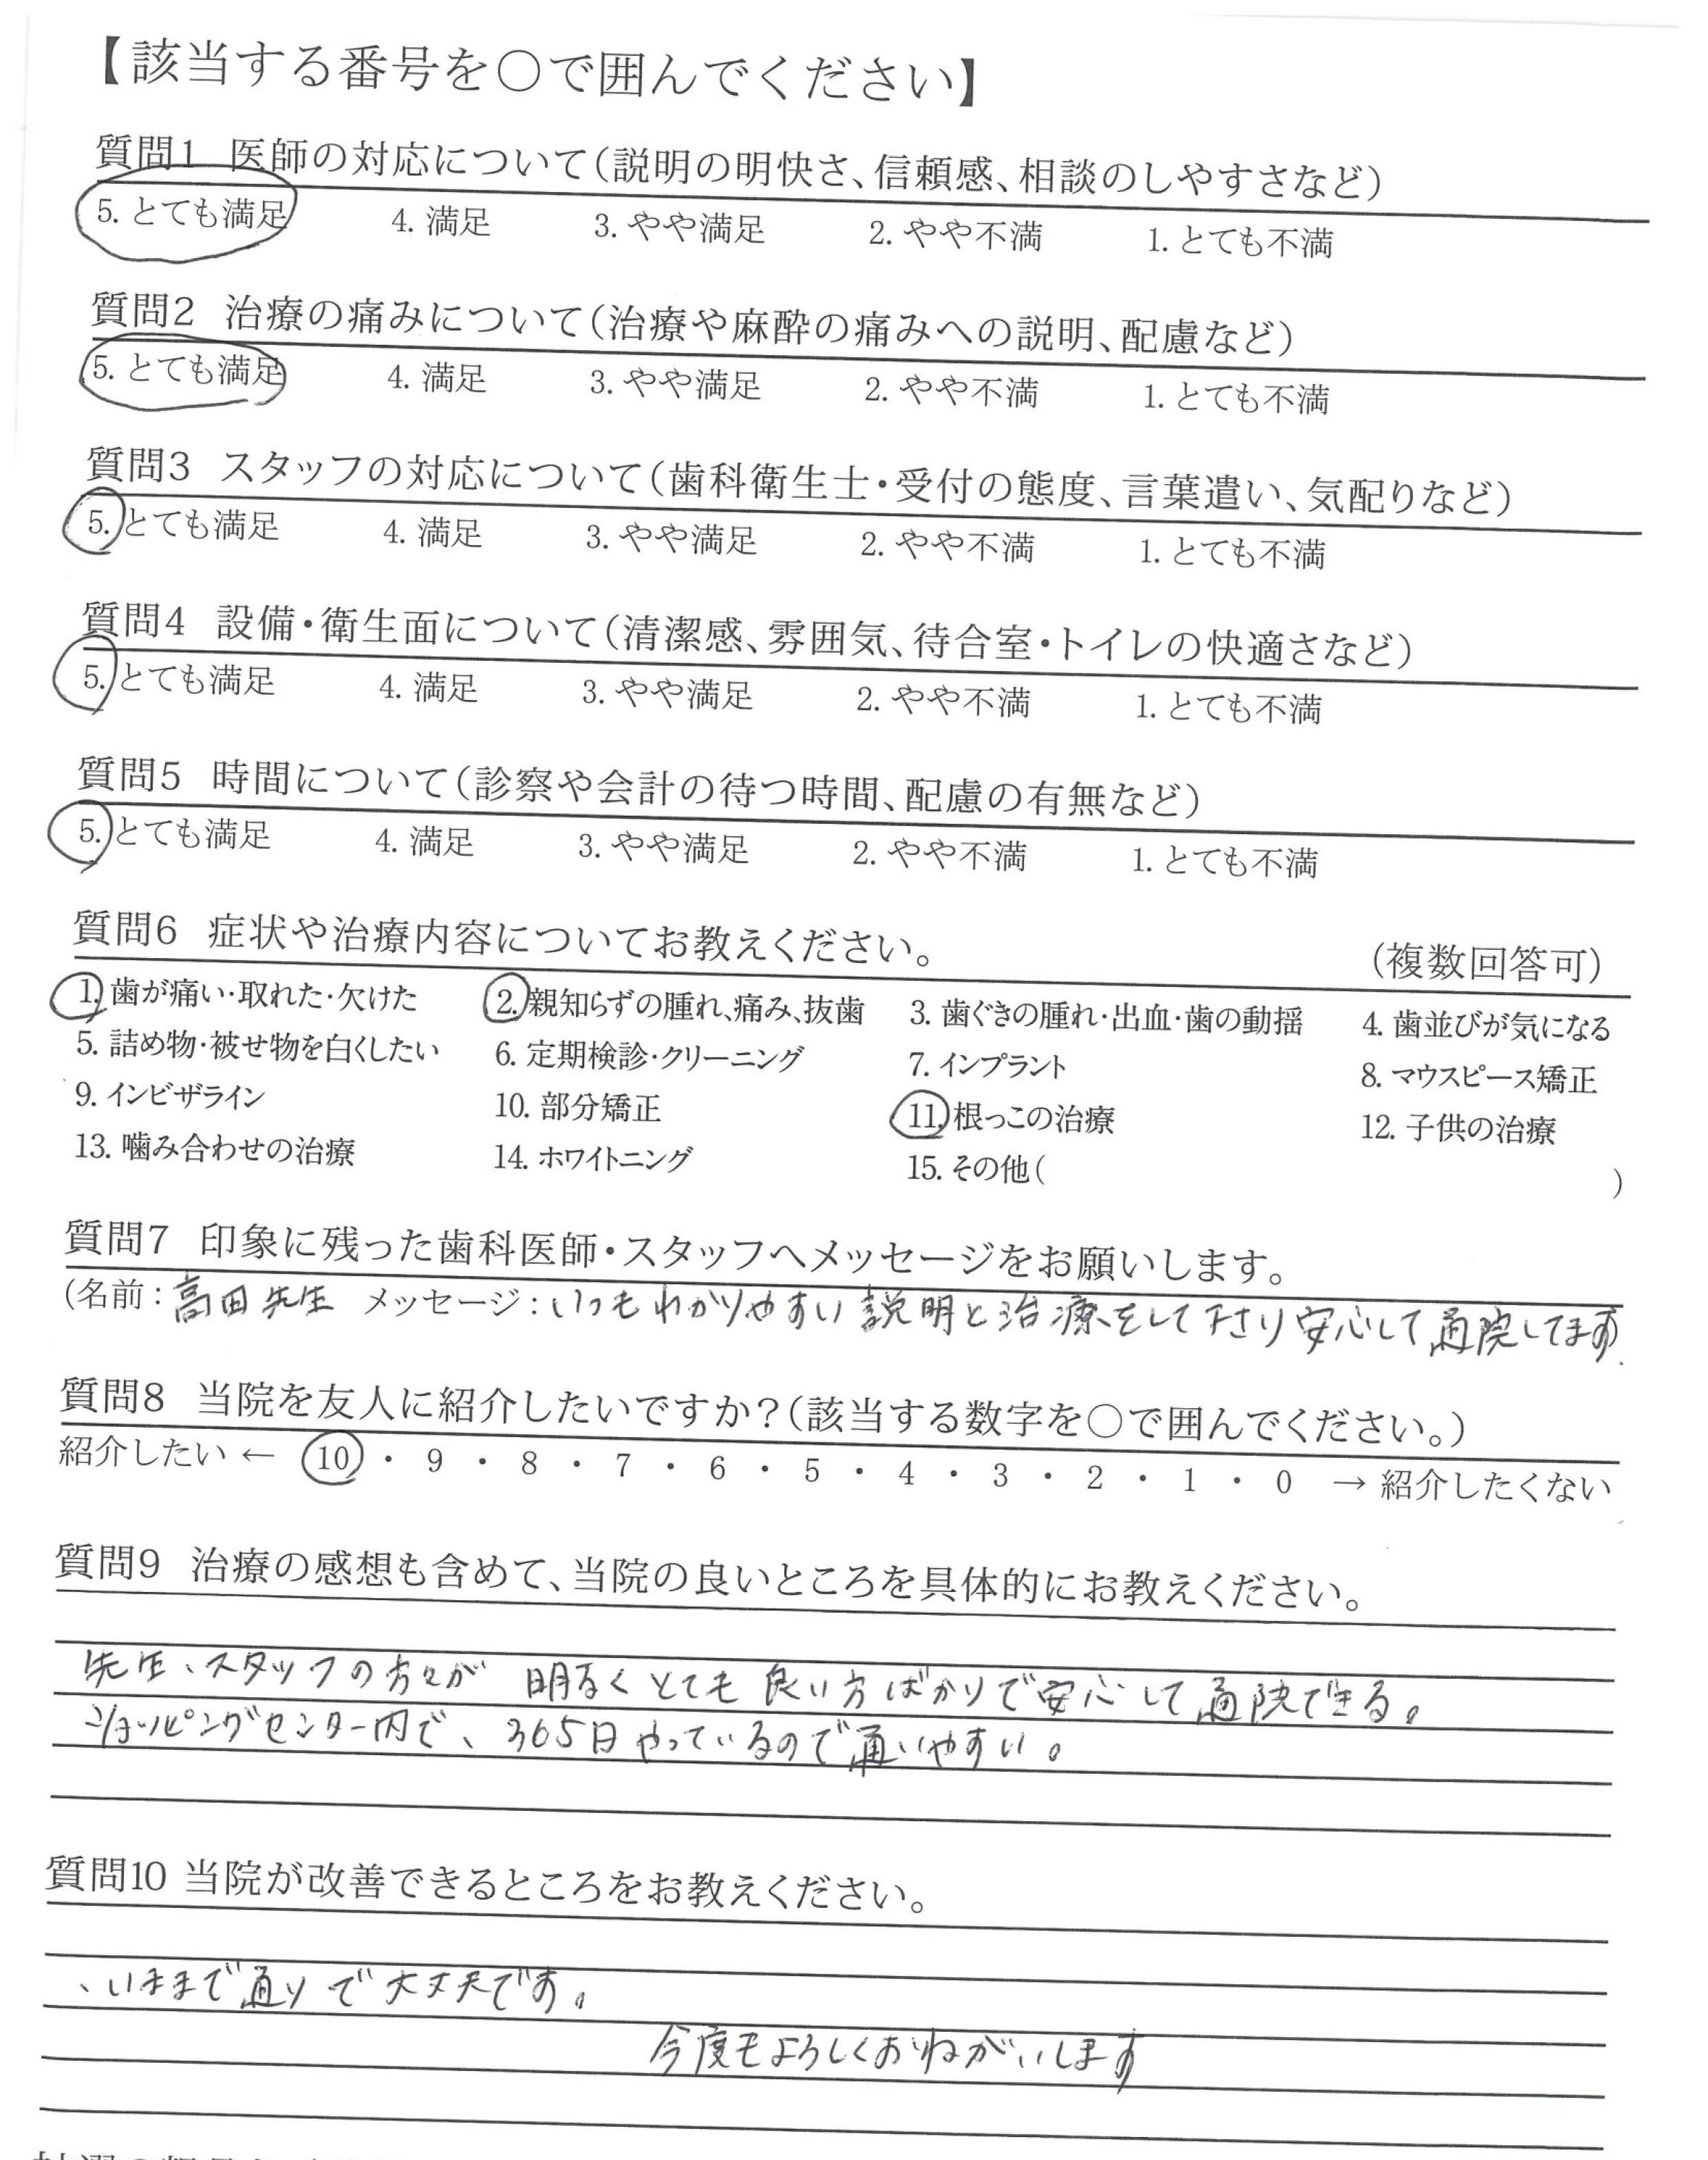 【該当する番号を○で囲んでください】
質問1 医師の対応について(説明の明快さ、信頼感、相談のしやすさなど)
5. とても満足 4. 満足 3. やや満足 2. やや不満 1. とても不満
質問2 治療の痛みについて(治療や麻酔の痛みへの説明、配慮など)
5. とても満足 4. 満足 3. やや満足 2. やや不満 1. とても不満
質問3 スタッフの対応について(歯科衛生士・受付の態度、言葉遣い、気配りなど)
5. とても満足 4. 満足 3. やや満足 2. やや不満 1. とても不満
質問4 設備・衛生面について(清潔感、雰囲気、待合室・トイレの快適さなど)
5. とても満足 4. 満足 3. やや満足 2. やや不満 1. とても不満
質問5 時間について(診察や会計の待つ時間、配慮の有無など)
5. とても満足 4. 満足 3. やや満足 2. やや不満 1. とても不満
質問6 症状や治療内容についてお教えください。 (複数回答可)
1. 歯が痛い・取れた・欠けた 2. 親知らずの腫れ、痛み、抜歯 3. 歯ぐきの腫れ・出血・歯の動揺 4. 歯並びが気になる
5. 詰め物・被せ物を白くしたい 6. 定期検診・クリーニング 7. インプラント 8. マウスピース矯正
9. インビザライン 10. 部分矯正 11. 根っこの治療 12. 子供の治療
13. 噛み合わせの治療 14. ホワイトニング 15. その他( )
質問7 印象に残った歯科医師・スタッフへメッセージをお願いします。
(名前:高田先生 メッセージ:いつもわかりやすい説明と治療をして下さり安心して通院してます)
質問8 当院を友人に紹介したいですか?(該当する数字を○で囲んでください。)
紹介したい ← 10 ・ 9 ・ 8 ・ 7 ・ 6 ・ 5 ・ 4 ・ 3 ・ 2 ・ 1 ・ 0 → 紹介したくない
質問9 治療の感想も含めて、当院の良いところを具体的にお教えください。
先生、スタッフの方々が 明るくとても良い方ばかりで安心して通院できる。
ショッピングセンター内で、365日やっているので通いやすい。
質問10 当院が改善できるところをお教えください。
、いままで通りで大丈夫です。
今度もよろしくおねがいします